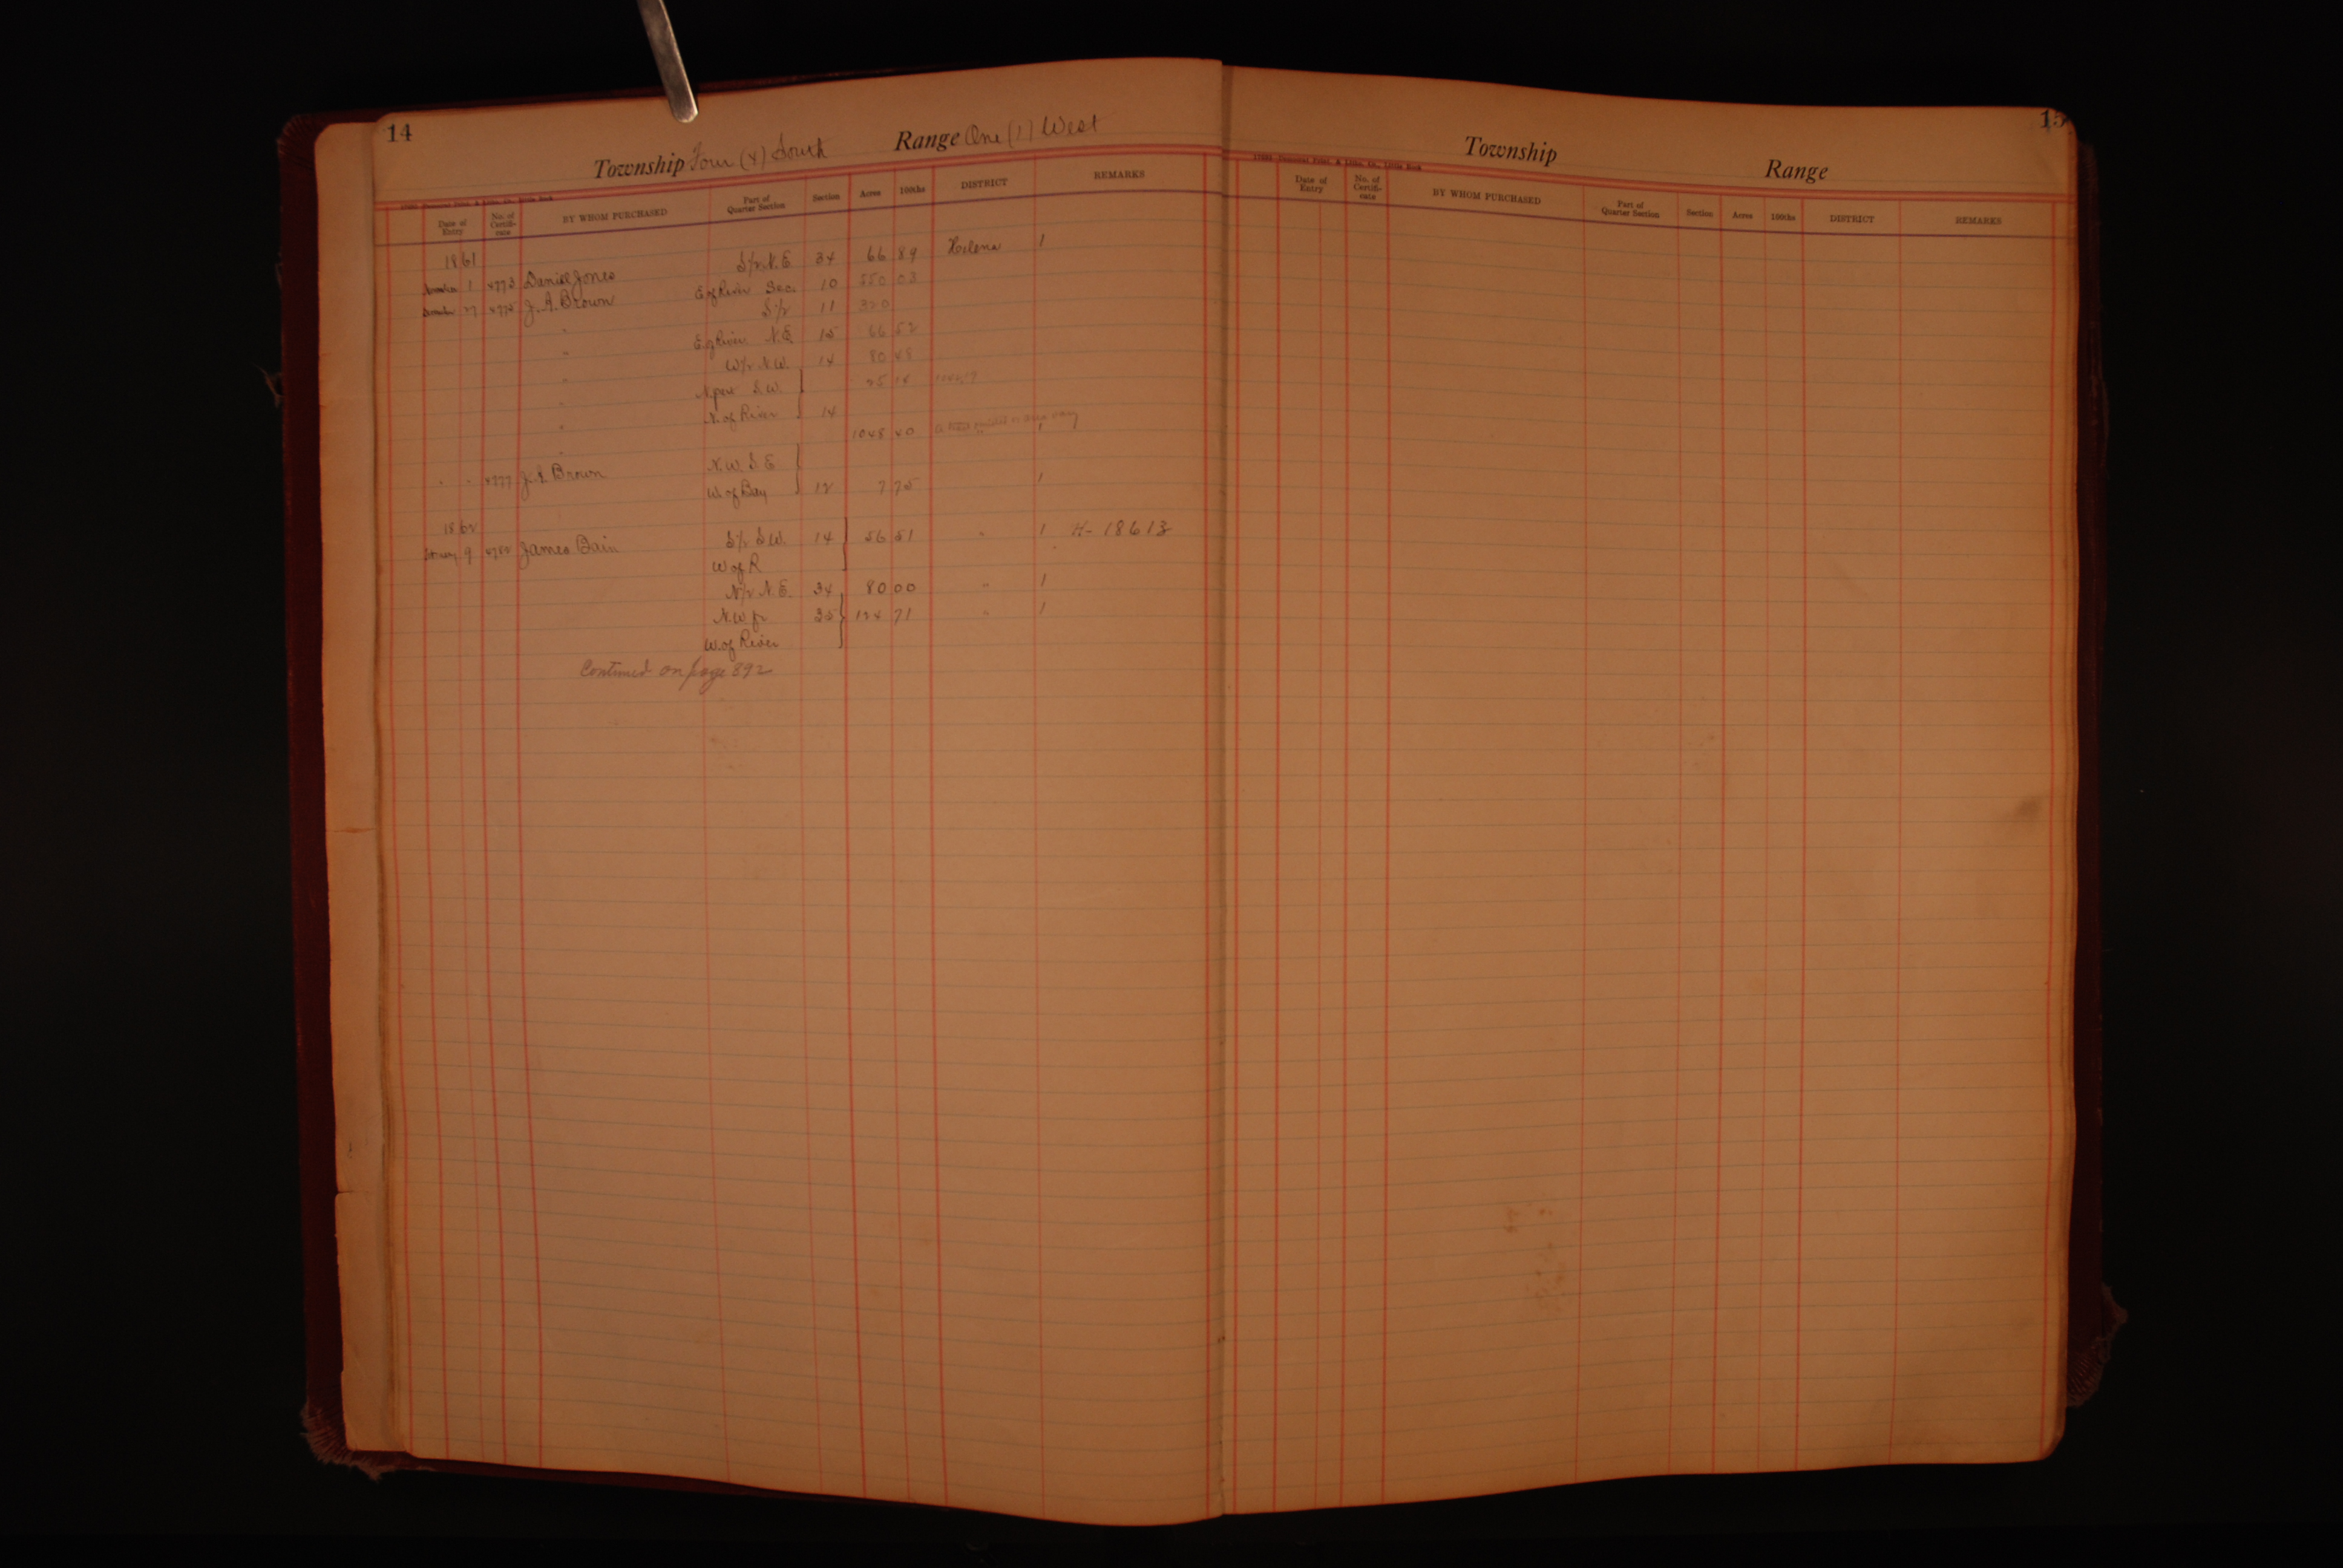 14
Township Four (4) South Range One (1) West
Date of Entry No. of Certifi-cate BY WHOM PURCHASED Part of Quarter Section Section Acres 100ths DISTRICT REMARKS
1861
1 4773 Daniel Jones S/2 N.E 34 66 89 Helena 1
27 J. A. Brown E of River Sec. 10 550 03
" S/2 11 320
" E of River N.E 15 66 52
" W/2 N.W. 14 80 48
" N part S.W. 25 14
" N. of River 14
" 1048 40
" " 4777 J. A. Brown N.W. S E
W. of Bay 12 7 75 1
1862
9 James Bain S/2 S.W. 14 56 51 " 1 H- 18613
W of R
N/2 N.E. 34 80 00 " 1
N.W fr 35 124 71 " 1
W. of River
Continued on page 892
15
Township Range
Date of Entry No. of Certifi-cate BY WHOM PURCHASED Part of Quarter Section Section Acres 100ths DISTRICT REMARKS